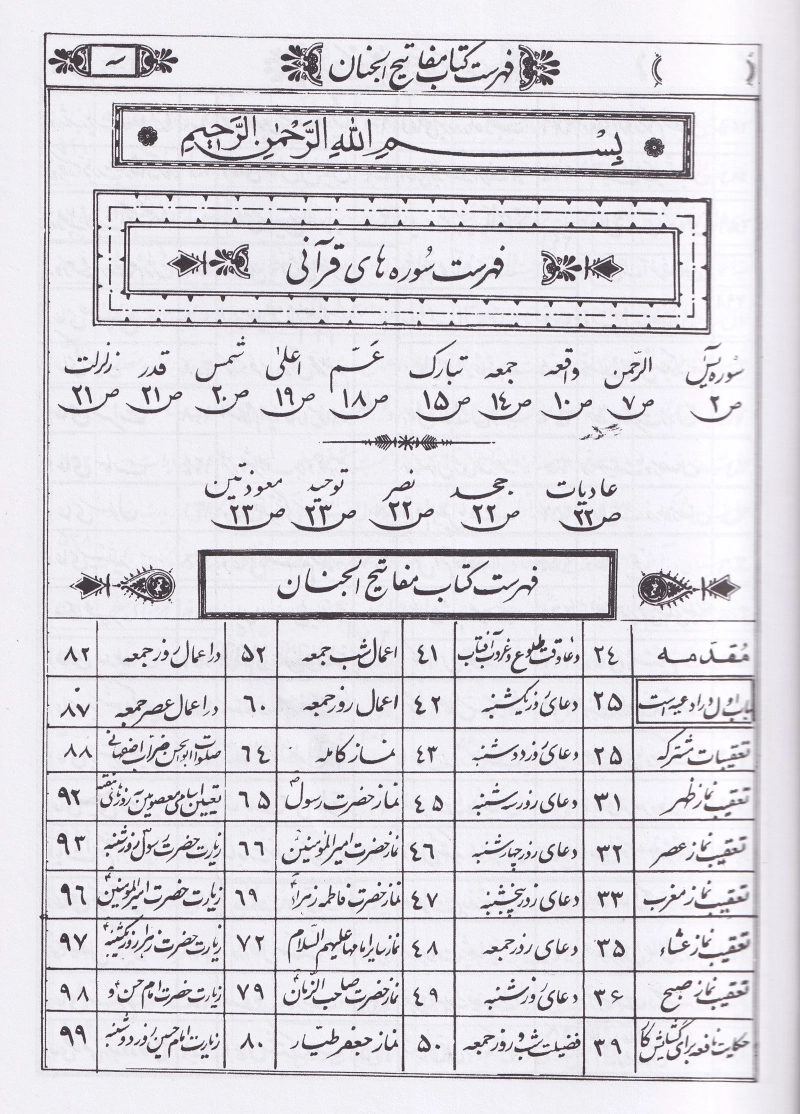 فهرست کتاب مفاتیح الجنان
بِسْمِ اللهِ الرَّحْمٰنِ الرَّحِیمِ
فهرست سُوره های قرآنی
سُوره یٓس الرحمٰن واقعه جمعه تبارک عَمّ اعلی شمس قدر زلزلت
ص۲ ص۷ ص۱۰ ص۱۴ ص۱۵ ص۱۸ ص۱۹ ص۲۰ ص۲۱ ص۲۱
عادیات جحد نصر توحید معوذتین
ص۲۲ ص۲۲ ص۲۲ ص۲۳ ص۲۳
فهرست کتاب مفاتیح الجنان
مقدمه ۲۴ دعا وقت طلوع و غروب آفتاب ۴۱ اعمال شب جمعه ۵۲ در اعمال روز جمعه ۸۲
باب اول در ادعیه است ۲۵ دعای روز یکشنبه ۴۲ اعمال روز جمعه ۶۰ در اعمال عصر جمعه ۸۷
تعقیبات مشترکه ۲۵ دعای روز دوشنبه ۴۳ نماز کامله ۶۴ صلوات ابوالحسن ضراب اصفهانی ۸۸
تعقیب نماز ظهر ۳۱ دعای روز سه شنبه ۴۵ نماز حضرت رسول ۶۵ تعیین اسامی معصومین به روزهای هفته ۹۲
تعقیب نماز عصر ۳۲ دعای روز چهارشنبه ۴۶ نماز حضرت امیرالمؤمنین ۶۶ زیارت حضرت رسول روز شنبه ۹۳
تعقیب نماز مغرب ۳۳ دعای روز پنجشنبه ۴۷ نماز حضرت فاطمه زهرا ۶۹ زیارت حضرت امیرالمؤمنین ۹۶
تعقیب نماز عشاء ۳۵ دعای روز جمعه ۴۸ نماز سایر امامها علیهم السلام ۷۲ زیارت حضرت زهرا روز یکشنبه ۹۷
تعقیب نماز صبح ۳۶ دعای روز شنبه ۴۹ نماز حضرت صاحب الزمان ۷۹ زیارت حضرت امام حسن و ۹۸
حکایت نافعه برای گشایش کا ۳۹ فضیلت شب و روز جمعه ۵۰ نماز جعفر طیار ۸۰ زیارت امام حسین روز دوشنبه ۹۹